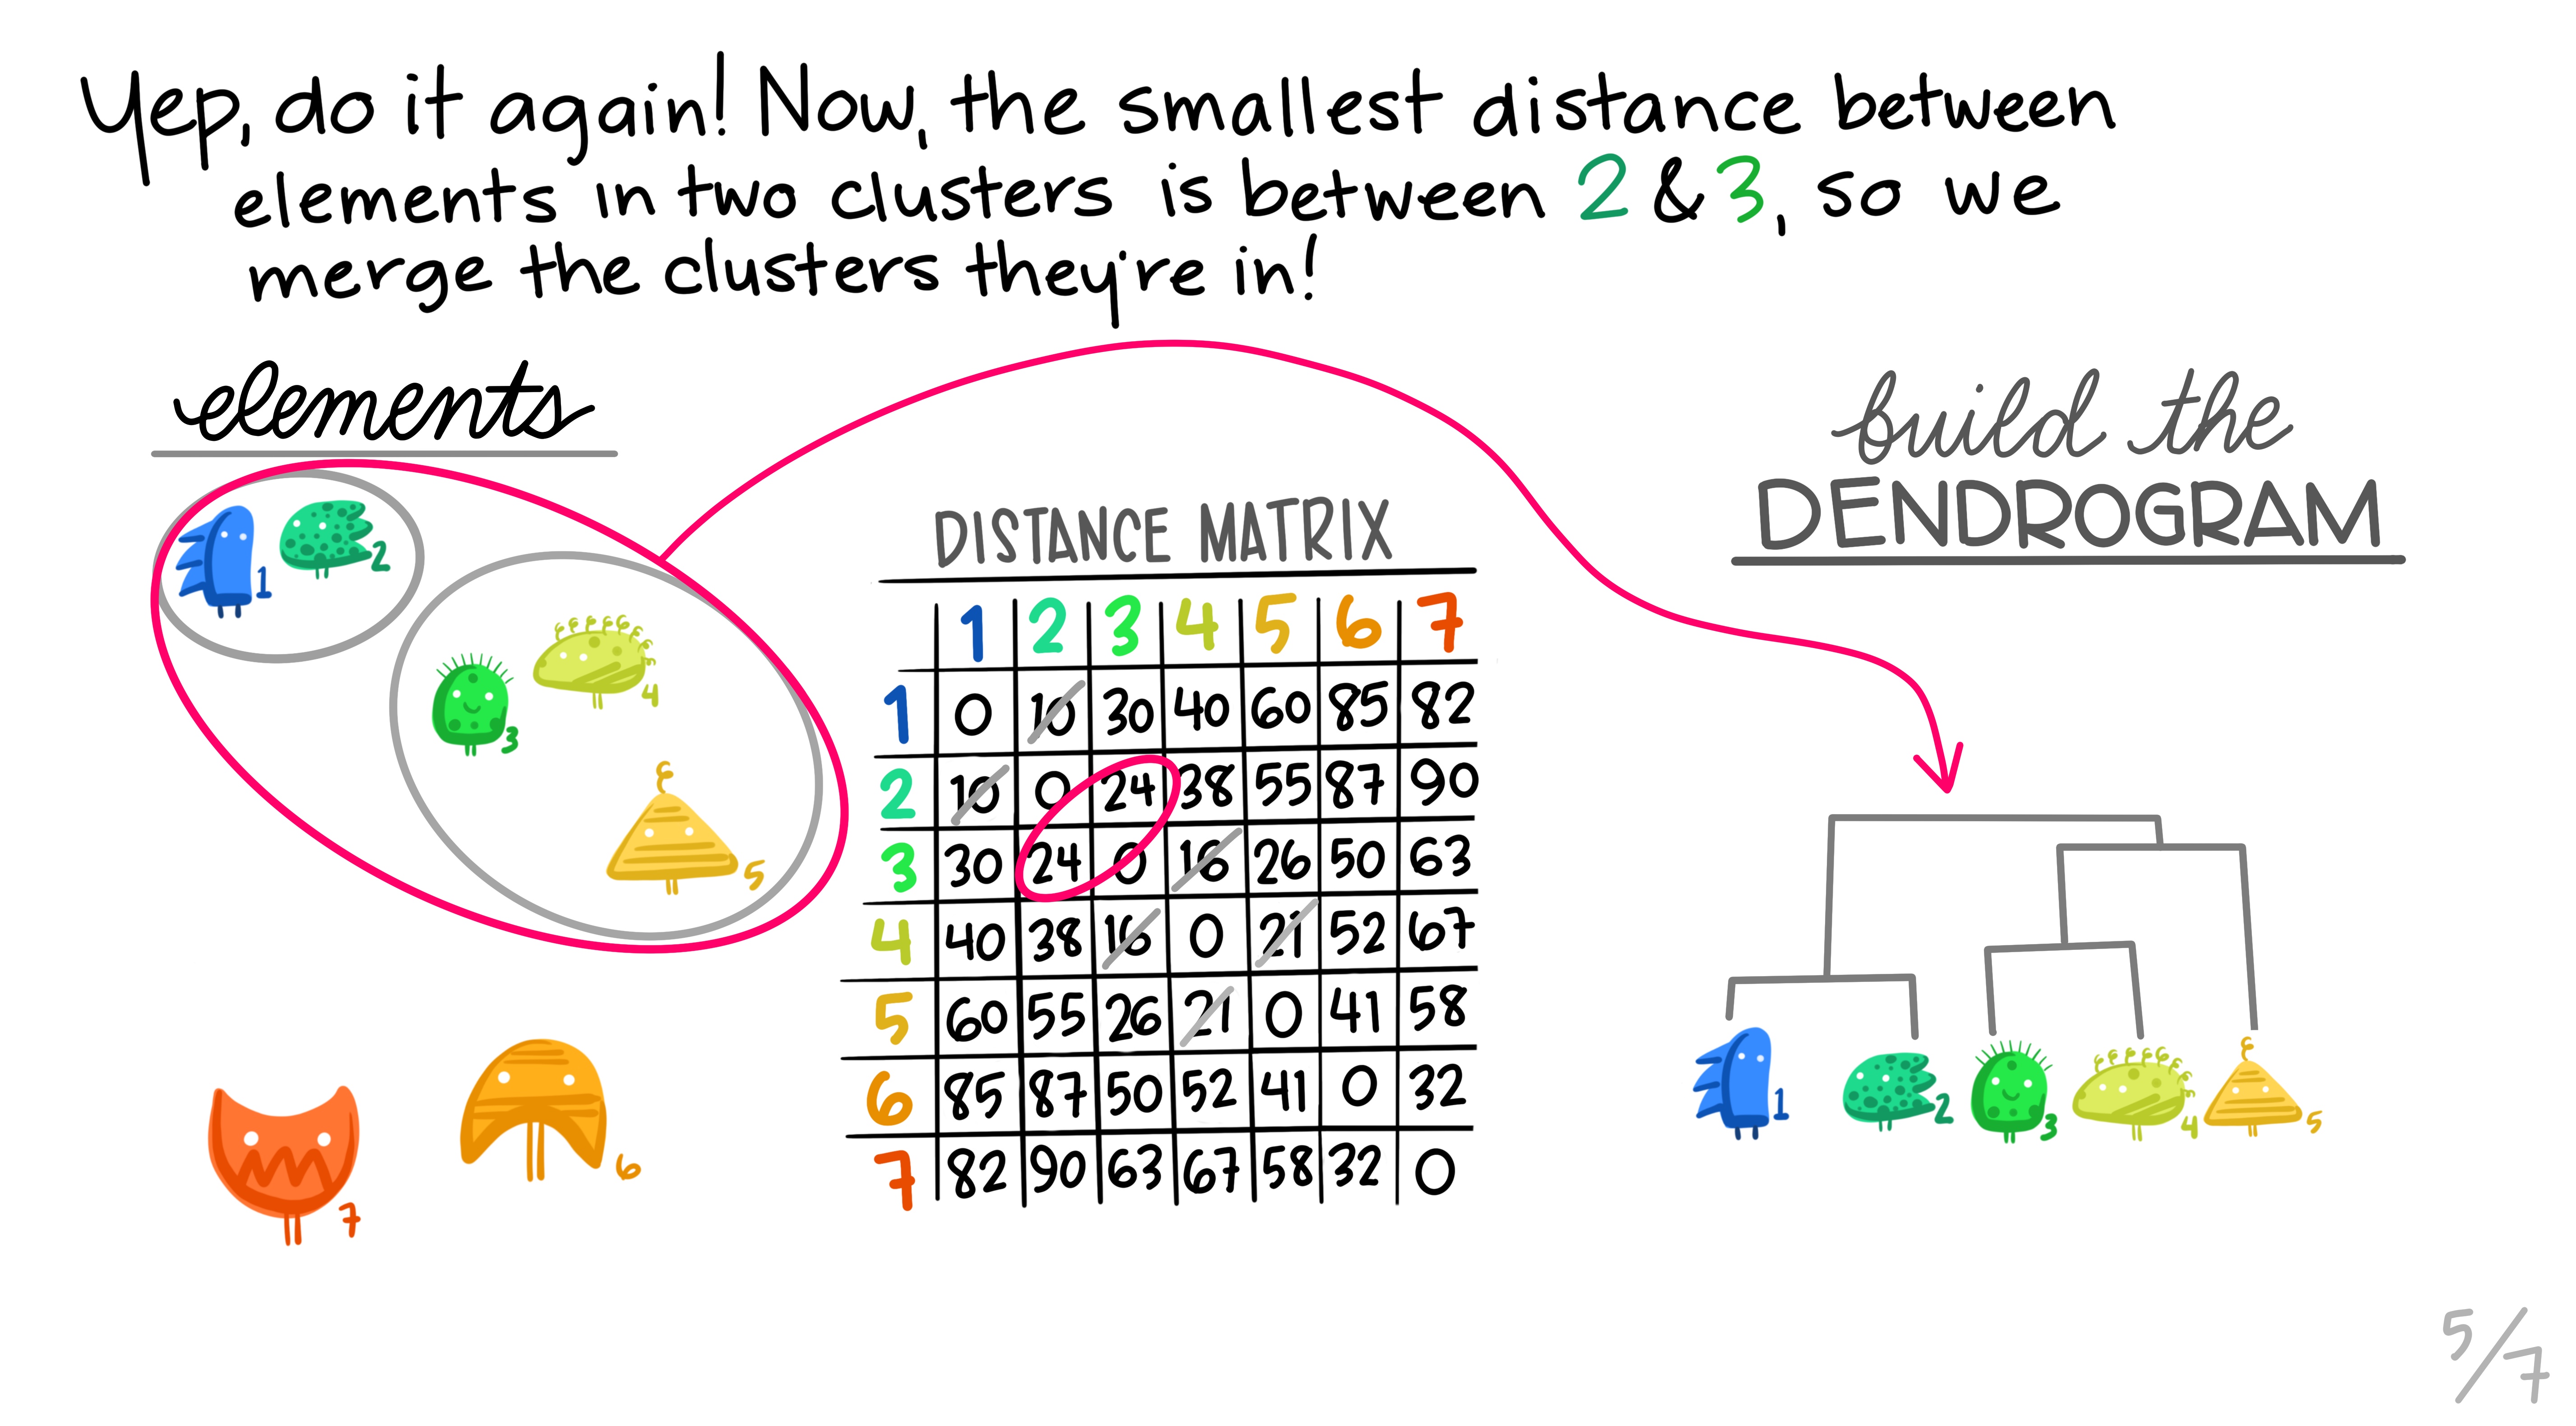 Yep, do it again! Now, the smallest distance between
elements in two clusters is between 2 & 3, so we
merge the clusters they're in!
elements
1
2
3
4
5
6
7
DISTANCE MATRIX
1 2 3 4 5 6 7
1 0 10 30 40 60 85 82
2 10 0 24 38 55 87 90
3 30 24 0 16 26 50 63
4 40 38 16 0 21 52 67
5 60 55 26 21 0 41 58
6 85 87 50 52 41 0 32
7 82 90 63 67 58 32 0
build the
DENDROGRAM
1 2 3 4 5
5/7